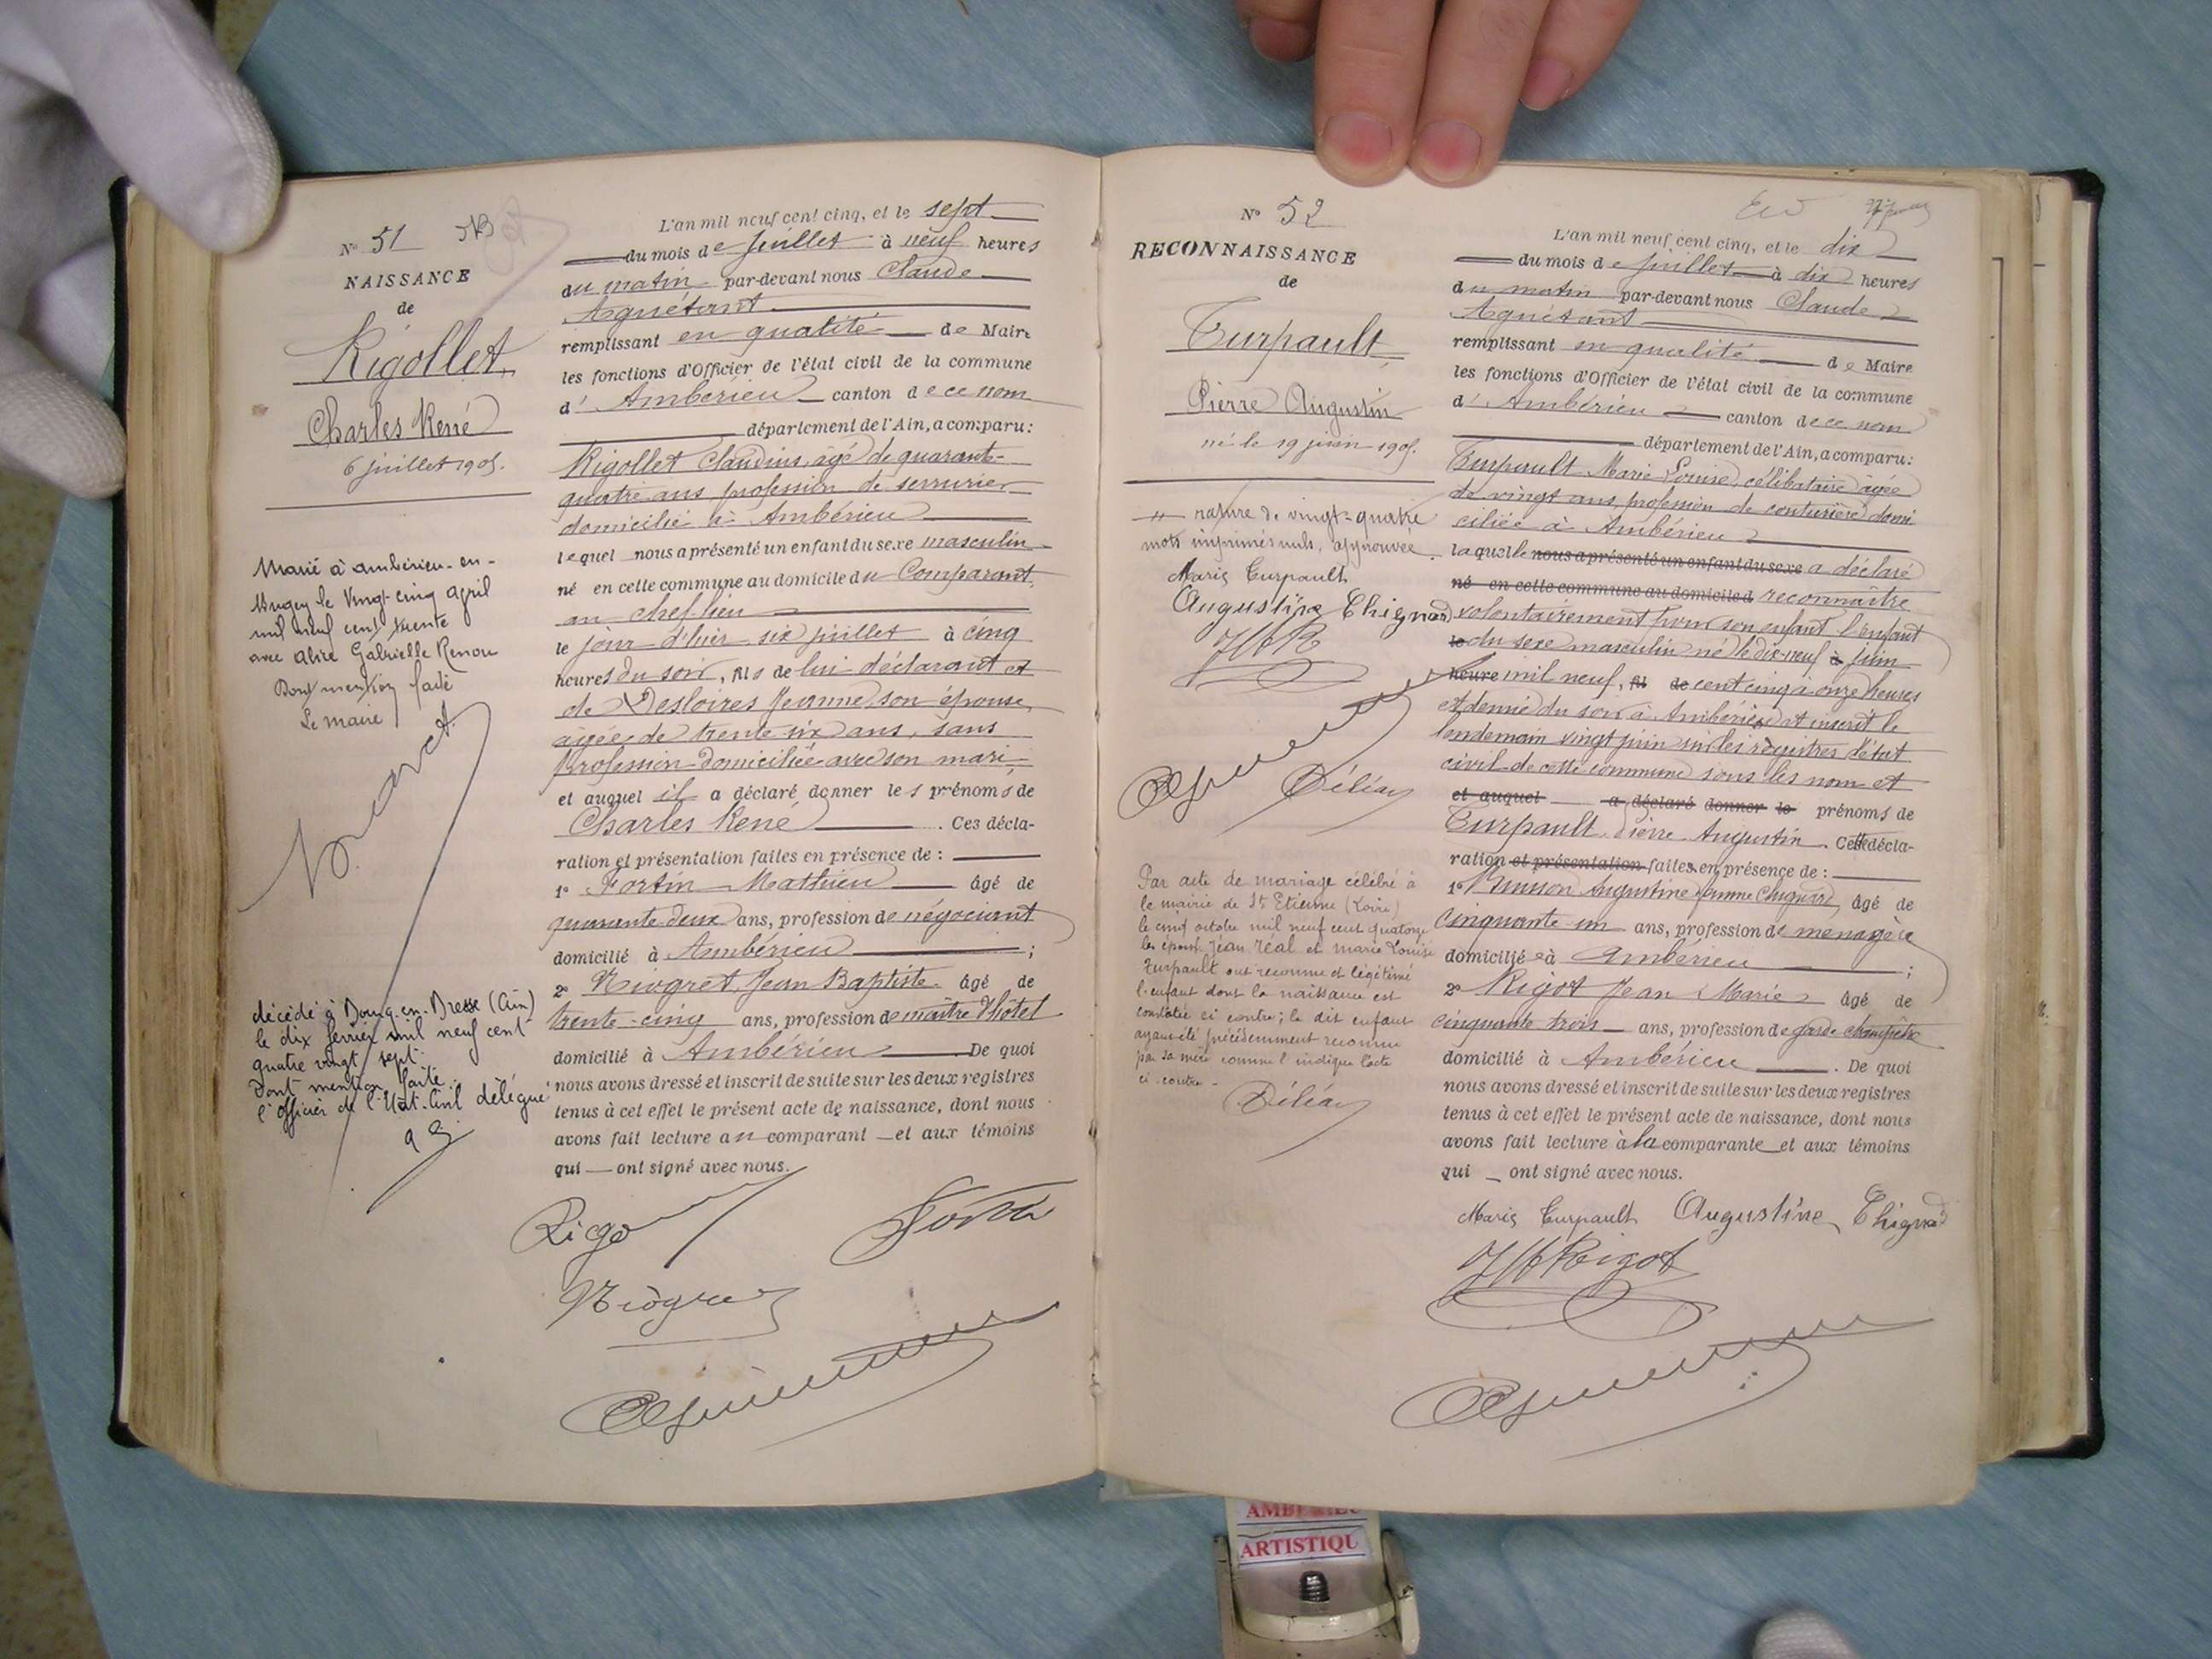 N° 51
NAISSANCE
de
Rigollet
Charles René
6 juillet 1905.
Marié à Ambérieu-en-
Bugey le vingt-cinq avril
mil neuf cent trente
avec Alice Gabrielle Renou
Dont mention faite
Le maire
décédé à Bourg-en-Bresse (Ain)
le dix février mil neuf cent
quatre vingt sept.
Dont mention faite.
l'officier de l'Etat-Civil délégué
L'an mil neuf cent cinq, et le sept
du mois de juillet à neuf heures
du matin par-devant nous Claude
Aguétant
remplissant en qualité de Maire
les fonctions d'Officier de l'état civil de la commune
d' Ambérieu canton de ce nom
département de l'Ain, a comparu:
Rigollet Claudius, âgé de quarante-
quatre ans, profession de serrurier
domicilié à Ambérieu
lequel nous a présenté un enfant du sexe masculin
né en cette commune au domicile du Comparant,
au chef-lieu
le jour d'hier six juillet à cinq
heures du soir, fils de lui déclarant et
de Desloires Jeanne, son épouse,
âgée de trente-six ans, sans
profession domiciliée avec son mari
et auquel il a déclaré donner les prénoms de
Charles René. Ces décla-
ration et présentation faites en présence de :
1° Fortin Mathieu âgé de
quarante-deux ans, profession de négociant
domicilié à Ambérieu ;
2° Niogret Jean Baptiste âgé de
trente-cinq ans, profession de maître d'hôtel
domicilié à Ambérieu De quoi
nous avons dressé et inscrit de suite sur les deux registres
tenus à cet effet le présent acte de naissance, dont nous
avons fait lecture au comparant et aux témoins
qui ont signé avec nous.
N° 52
RECONNAISSANCE
de
Turpault
Pierre Augustin
né le 19 juin 1905.
rature de vingt-quatre
mots imprimés nuls, approuvée.
Marie Turpault
Augustine Chignard
JMR
Déléaz
Par acte de mariage célébré à
la mairie de St Etienne (Loire)
le cinq octobre mil neuf cent quatorze
les époux Jean Réal et Marie Louise
Turpault ont reconnu et légitimé
l'enfant dont la naissance est
constatée ci contre; le dit enfant
ayant été précédemment reconnu
par sa mère comme l'indique l'acte
ci-contre.
Déléaz
L'an mil neuf cent cinq, et le dix
du mois de juillet à dix heures
du matin par-devant nous Claude
Aguétant
remplissant en qualité de Maire
les fonctions d'Officier de l'état civil de la commune
d' Ambérieu canton de ce nom
département de l'Ain, a comparu:
Turpault Marie Louise, célibataire âgée
de vingt ans, profession de couturière domi
ciliée à Ambérieu
laquelle nous a présenté un enfant du sexe a déclaré
né en cette commune au domicile d reconnaître
volontairement pour son enfant l'enfant
le du sexe masculin né le dix-neuf à juin
heure mil neuf, fil de cent cinq à onze heures
et demie du soir à Ambérieu et inscrit le
lendemain vingt juin sur les registres d'état
civil de cette commune sous les nom et
et auquel a déclaré donner le prénoms de
Turpault Pierre Augustin. Cette décla-
ration et présentation faites en présence de :
1° Augustine femme Chignard, âgé de
cinquante-un ans, profession de ménagère
domiciliée à Ambérieu ;
2° Rigot Jean Marie âgé de
cinquante trois ans, profession de garde champêtre
domicilié à Ambérieu. De quoi
nous avons dressé et inscrit de suite sur les deux registres
tenus à cet effet le présent acte de naissance, dont nous
avons fait lecture à la comparante et aux témoins
qui ont signé avec nous.
Marie Turpault Augustine Chignard
JM Rigot
ARTISTIQU